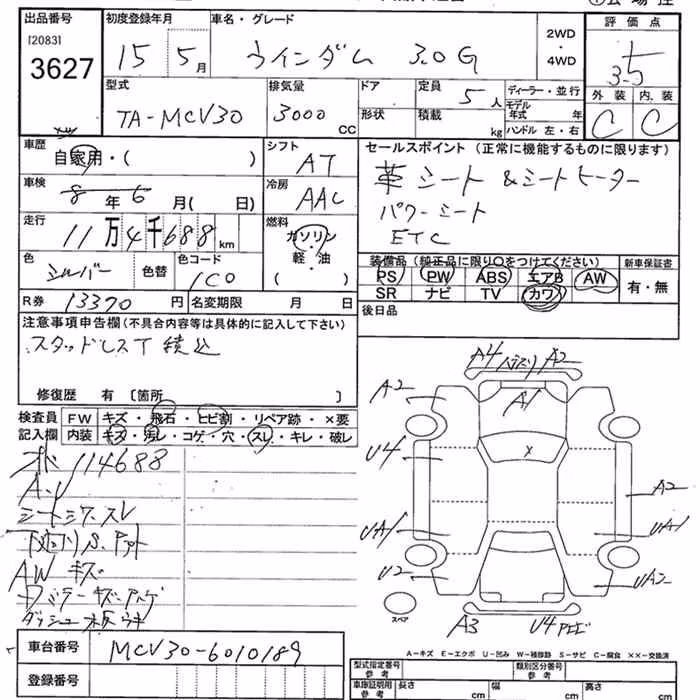 出品番号 初度登録年月 車名・グレード 評価点
[2083]
3627
15 5月 ウインダム 3.0G 2WD・4WD
3.5
型式 排気量 ドア 定員 5人 ディーラー・並行 外装 内装
TA-MCV30 3000cc 形状 積載 kg モデル年式 年 C C
ハンドル 左・右
車歴 自家用・( ) シフト AT セールスポイント (正常に機能するものに限ります)
革シート & シートヒーター
車検 8年6月( 日) 冷房 AAC パワーシート
走行 11万4千688km 燃料 ガソリン・軽・油 ( ) ETC
色 シルバー 色替 色コード 1C0 装備品(純正品に限り○をつけてください) 新車保証書
PS PW ABS エアB AW 有・無
R券 13370円 名変期限 月 日 SR ナビ TV カワ
注意事項申告欄(不具合内容等は具体的に記入して下さい) 後日品
スタッドレスT積込
修復歴 有 〔箇所 〕
検査員 FW キズ・飛石・ヒビ割・リペア跡・×要
記入欄 内装 キズ・汚レ・コゲ・穴・スレ・キレ・破レ
114688
シート スレ
AW キズ
A4 A2
A2 A1
U4 X
A2
UA1 UA1
U2 UA2
スペア A3 U4
車台番号 MCV30-6010189
A-キズ E-エクボ U-凹み W-補修跡 S-サビ C-腐食 ××-交換済
登録番号 型式指定番号 参考 類別区分番号 参考
車庫証明用 参考 長さ cm 幅 cm 高さ cm